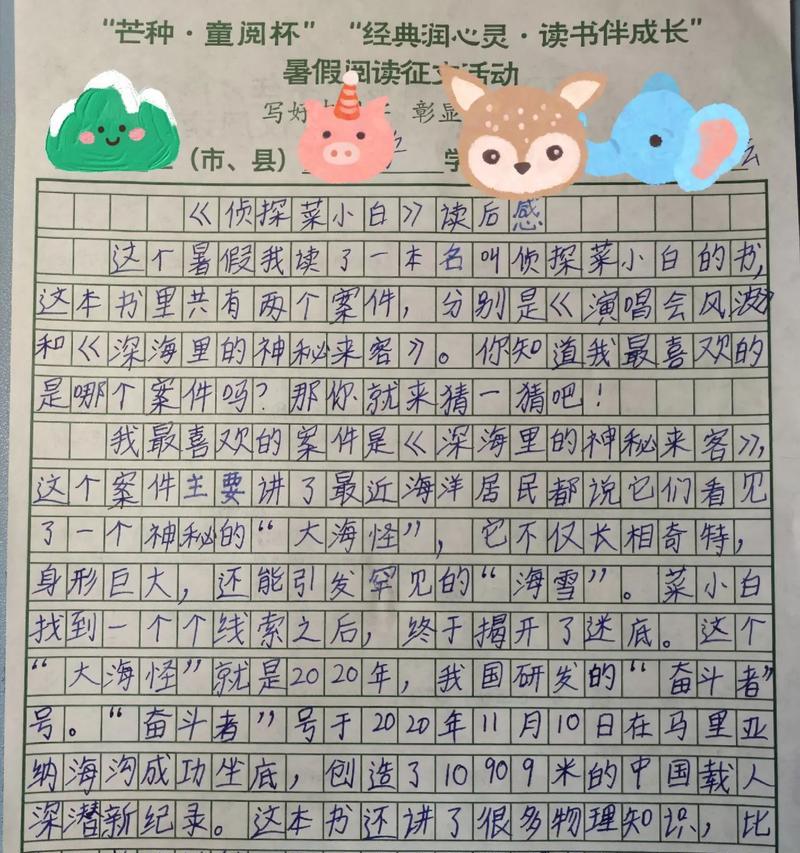 “芒种·童阅杯” “经典润心灵·读书伴成长”
暑假阅读征文活动
写好 彰显
(市、县) 学
《侦探菜小白》读后感
这个暑假我读了一本名叫侦探菜小白的书,
这本书里共有两个案件,分别是《演唱会风波》
和《深海里的神秘来客》。你知道我最喜欢的
是哪个案件吗?那你就来猜一猜吧!
我最喜欢的案件是《深海里的神秘来客》,
这个案件主要讲了最近海洋居民都说它们看见
了一个神秘的“大海怪”,它不仅长相奇特,
身形巨大,还能引发罕见的“海雪”。菜小白
找到一个个线索之后,终于揭开了迷底。这个
“大海怪”就是2020年,我国研发的“奋斗者”
号。“奋斗者”号于2020年11月10日在马里亚
纳海沟成功坐底,创造了10909米的中国载人
深潜新纪录。这本书还讲了很多物理知识,比